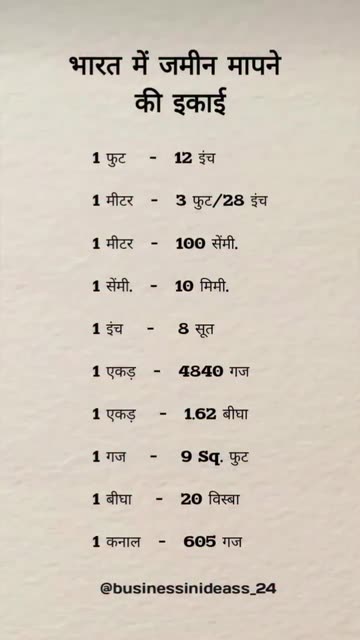 भारत में जमीन मापने
की इकाई
1 फुट - 12 इंच
1 मीटर - 3 फुट/28 इंच
1 मीटर - 100 सेंमी.
1 सेंमी. - 10 मिमी.
1 इंच - 8 सूत
1 एकड़ - 4840 गज
1 एकड़ - 1.62 बीघा
1 गज - 9 Sq. फुट
1 बीघा - 20 विस्बा
1 कनाल - 605 गज
@businessinideass_24